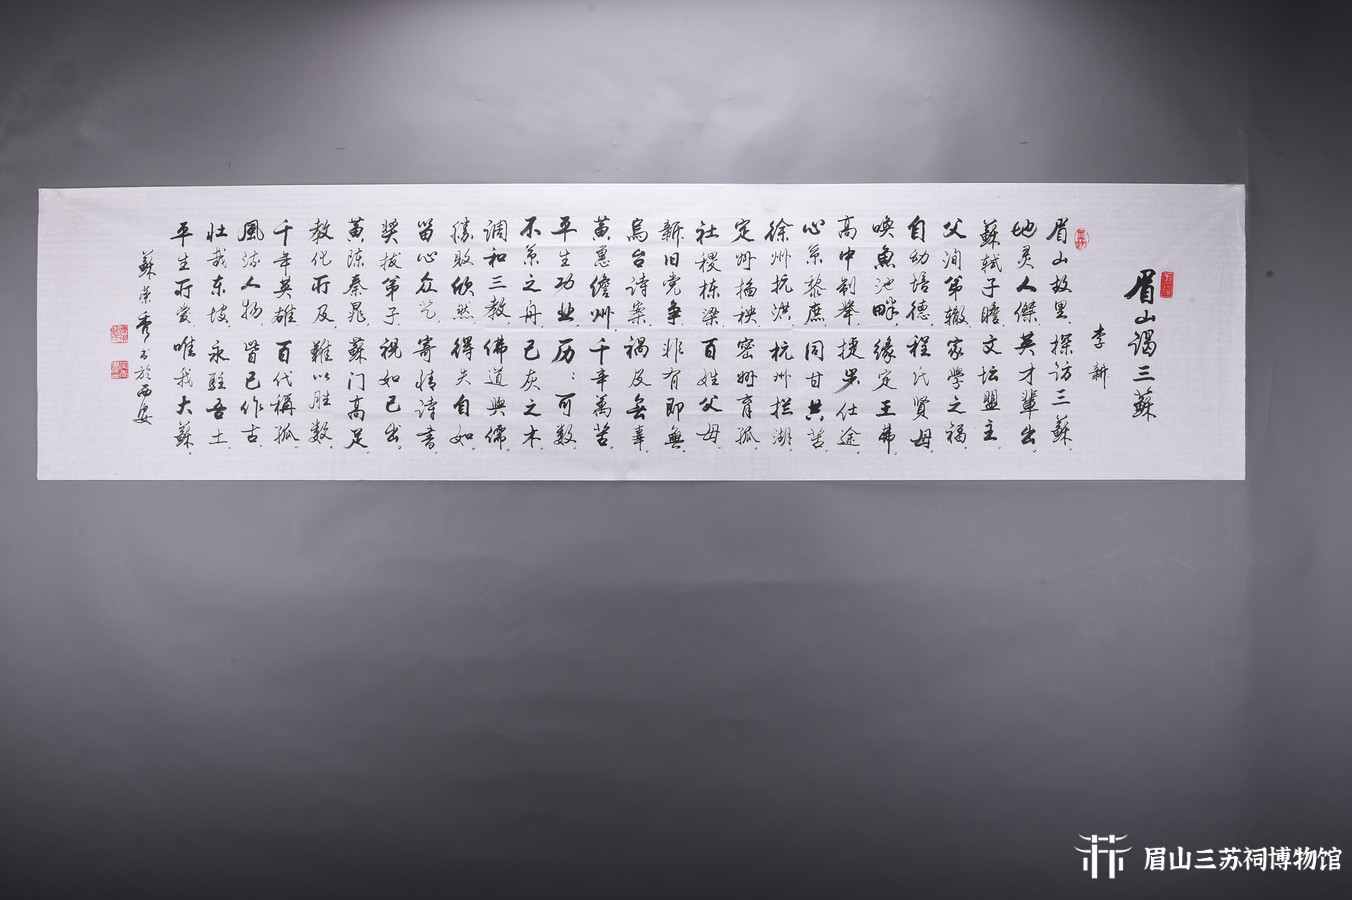 眉山謁三蘇
李新
眉山故里,探访三蘇,
地灵人傑,英才輩出,
蘇軾子瞻,文坛盟主,
父洵弟辙,家學之福,
自幼培德,程氏賢母,
唤魚池畔,缘定王弗,
高中制舉,捷步仕途,
心系黎庶,同甘共苦,
徐州抗洪,杭州拦湖,
定州插秧,密州育孤,
社稷栋梁,百姓父母,
新旧党争,非有即無,
烏台诗案,禍及無辜,
黄惠儋州,千辛萬苦,
平生功业,历历可数,
不系之舟,已灰之木,
调和三教,佛道與儒,
勝败欣然,得失自如,
留心众艺,寄情诗書,
奖拔弟子,视如己出,
黄陈秦晁,蘇门高足,
教化所及,難以胜数,
千年英雄,百代稱孤,
風流人物,皆已作古,
壮哉东坡,永驻吾土,
平生所爱,唯我大蘇,
蘇荣秀书於西安
眉山三苏祠博物馆